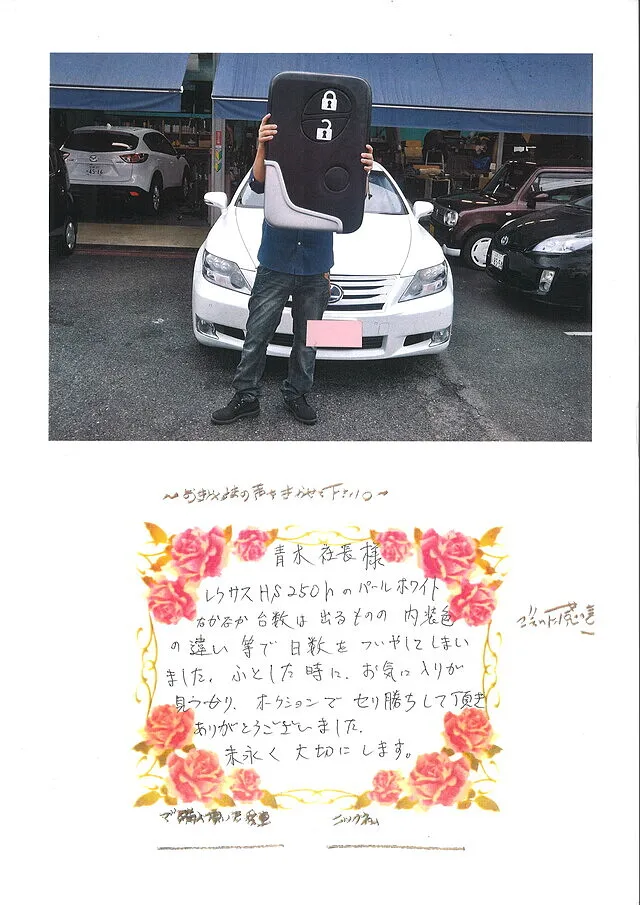 ～お客さまの声をきかせて下さい。～
青木社長様
レクサスHS250hのパールホワイト
なかなか台数は出るものの 内装色
の違い等で日数をついやしてしまい
ました。ふとした時に、お気に入りが
見つかり、オークションでセリ勝ちして頂き
ありがとうございました。
末永く大切にします。
ニックネーム